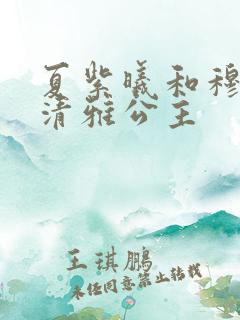 夏紫曦和穆
清雅公主
王琪鹏
未经同意禁止转载